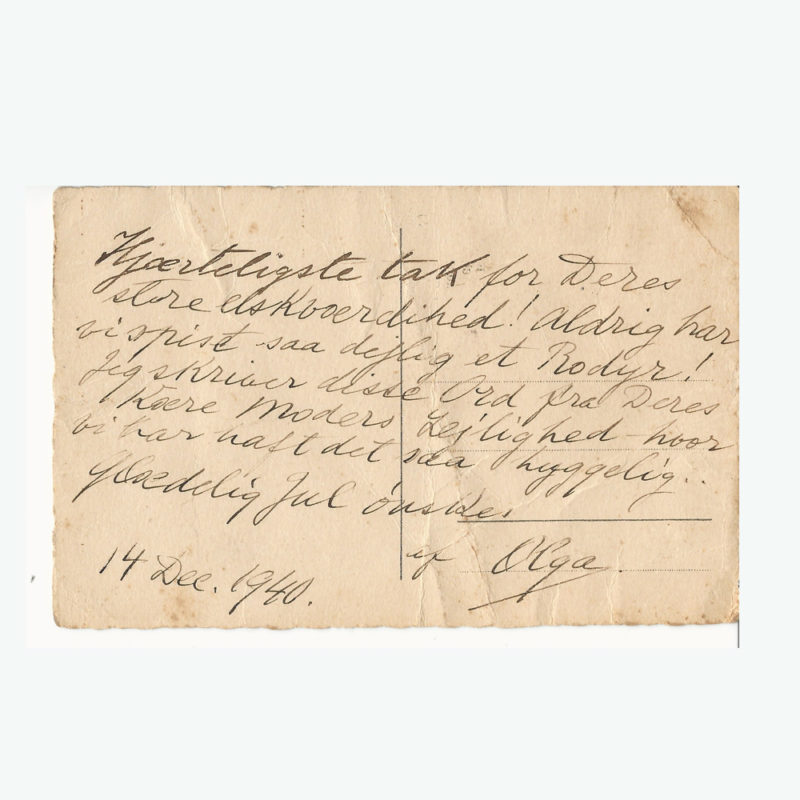 Hjærteligste tak for Deres
store elskværdihed! Aldrig har
vi spist saa dejlig et Rodyr!
Jeg skriver disse Ord fra Deres
Kære Moders Lejlighed - hvor
vi har haft det saa hyggelig..
Glædelig Jul ønskes
af Olga
14 Dec. 1940.